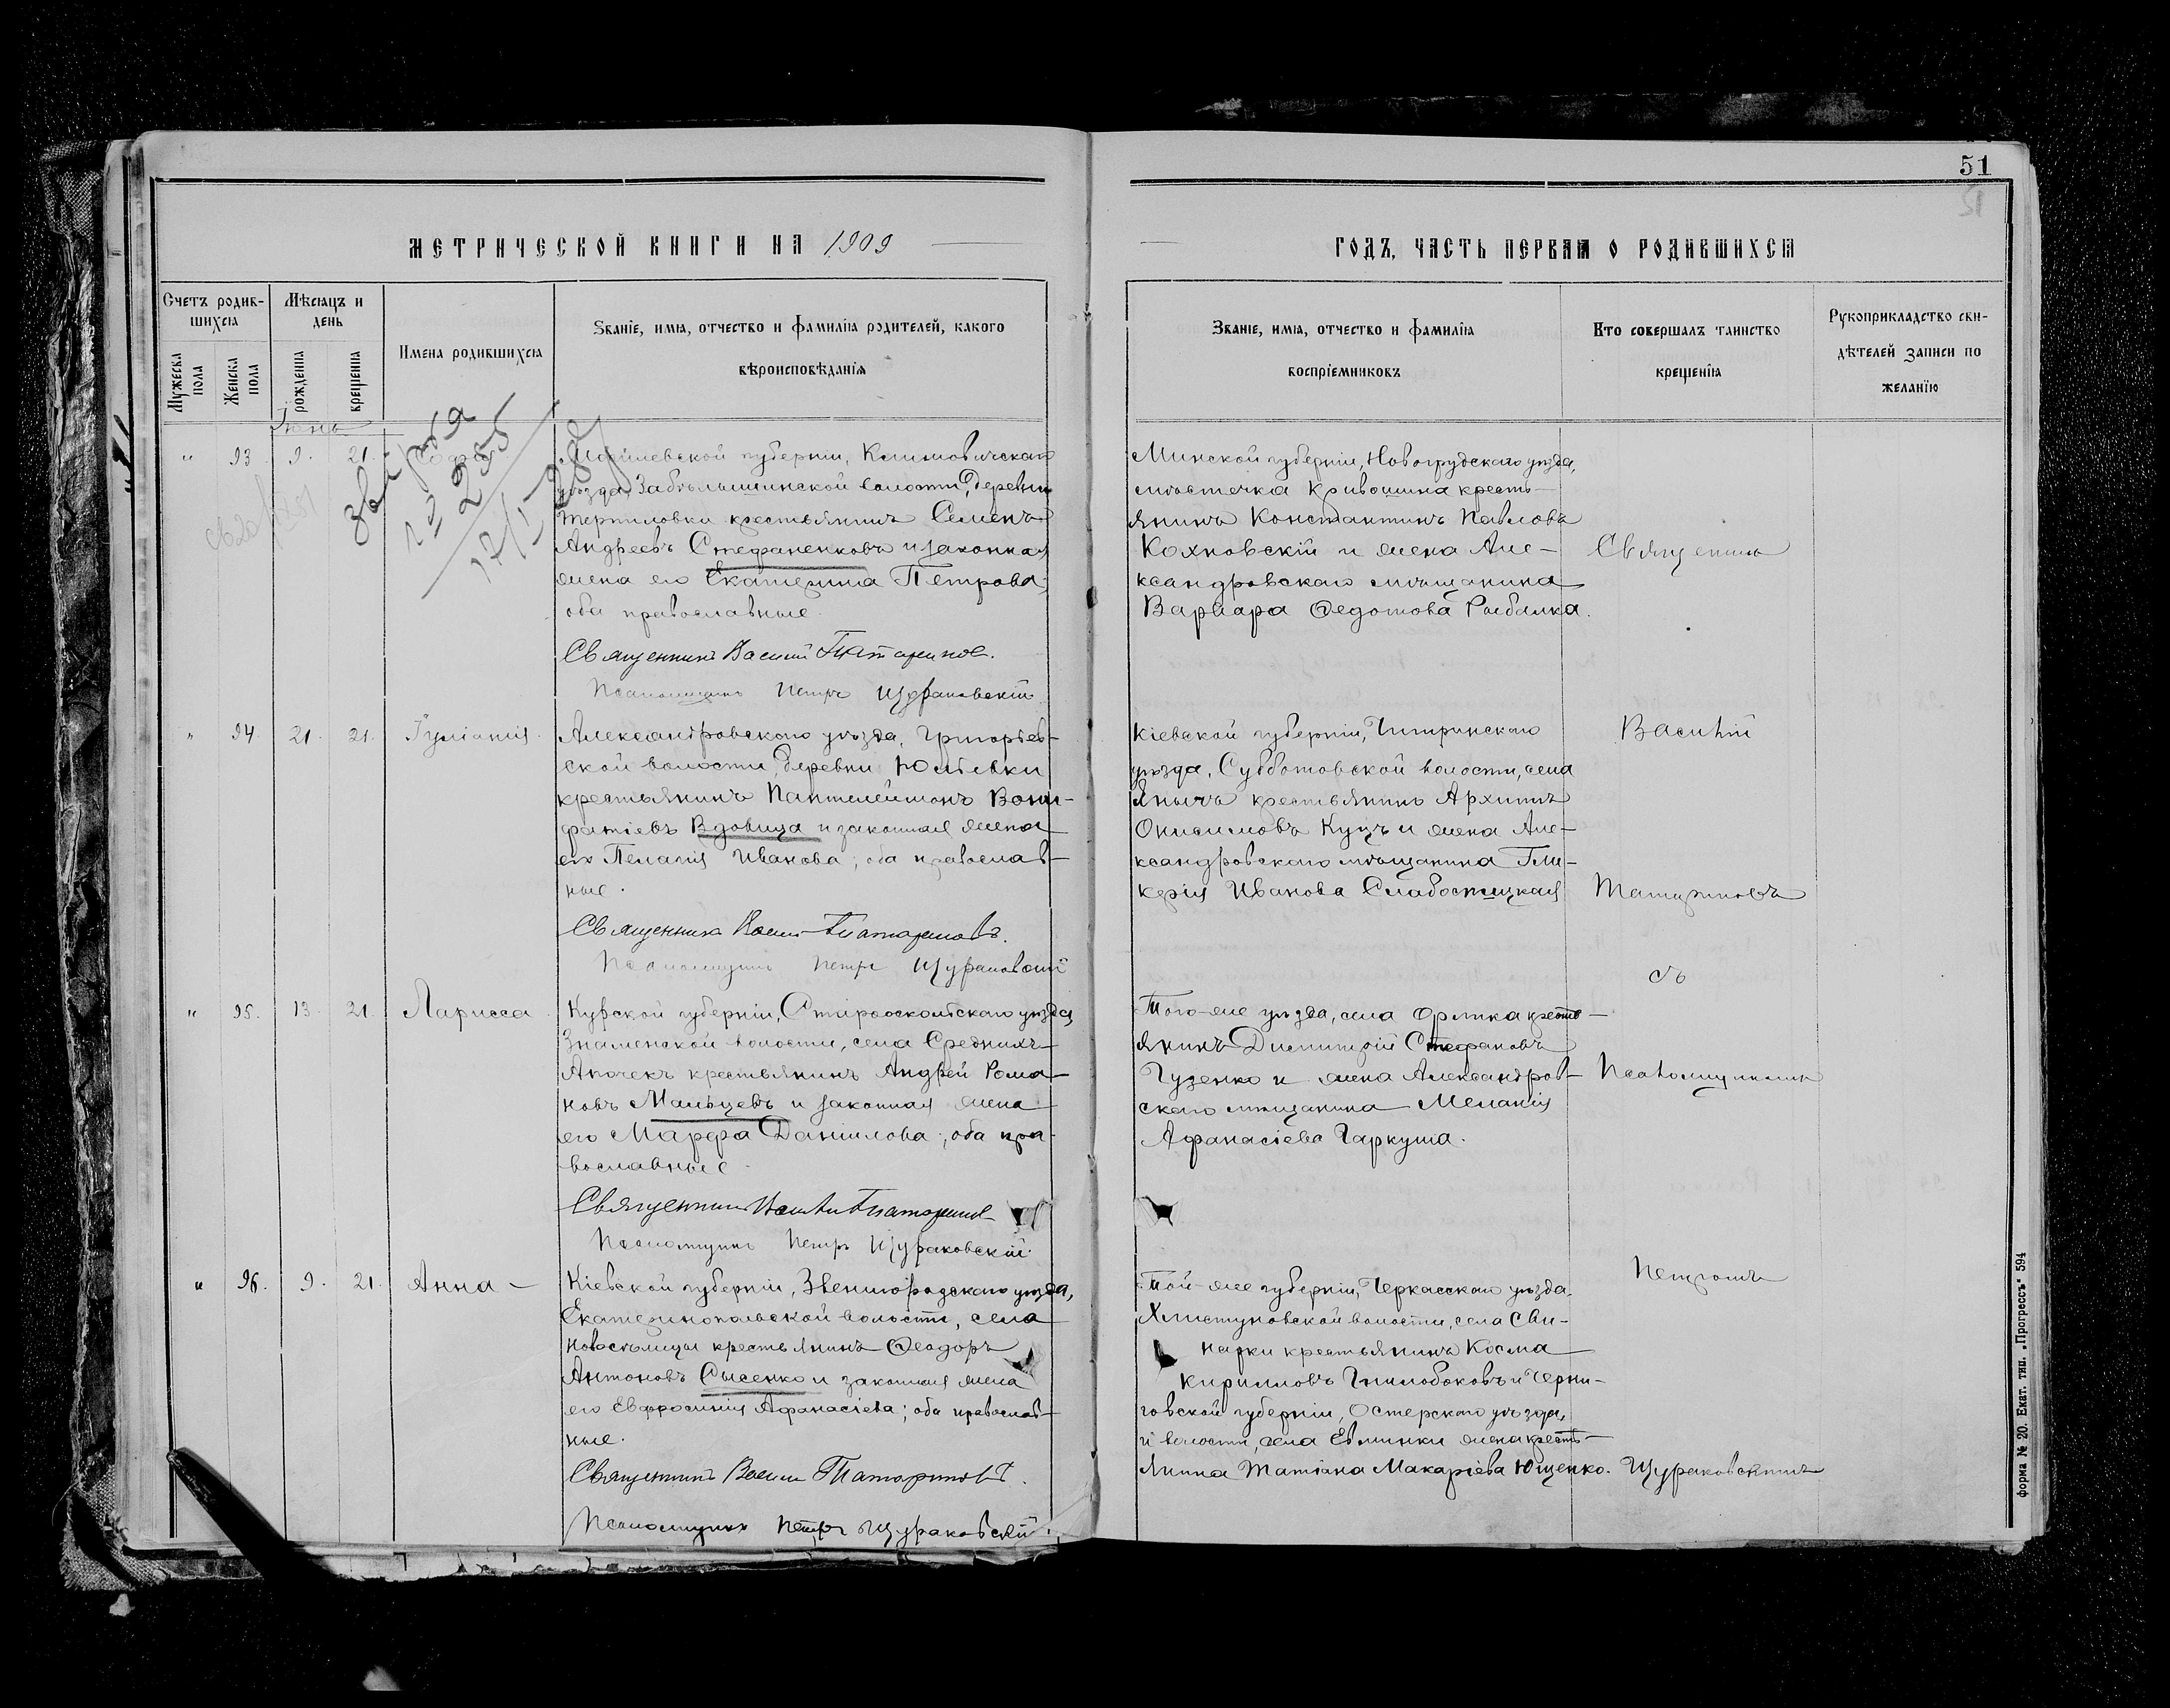 51
МЕТРИЧЕСКОЙ КНИГИ НА 1909
ГОДЪ, ЧАСТЬ ПЕРВАЯ О РОДИВШИХСЯ
Счетъ родив-
шихся
Мѣсяцъ и
день
Мужеска
пола
Женска
пола
рожденія
крещенія
Имена родившихся
Званіе, имя, отчество и фамилія родителей, какого
вѣроисповѣданія
Званіе, имя, отчество и фамилія
воспріемниковъ
Кто совершалъ таинство
крещенія
Рукоприкладство сви-
дѣтелей записи по
желанію
Іюнь
" 93 9. 21.
Могилевской губерніи, Климовичскаго
уѣзда, Забѣлышинской волости, деревни
крестьянинъ Семенъ
Андреевъ Стефаненковъ и законная
жена его Екатерина Петрова;
оба православные.
Священникъ Василій Татариновъ.
Псаломщикъ Петръ Щураковскій
Минской губерніи, Новогрудскаго уѣзда,
мѣстечка Кривошина кресть-
янинъ Константинъ Павловъ
Кохновскій и жена Але-
ксандровскаго мѣщанина
Варвара Ѳедотова Рыбалка.
Священникъ
" 94. 21. 21. Іуліанія.
Александровскаго уѣзда, Григорьев-
ской волости, деревни Юльевки
крестьянинъ Пантелеймонъ Вони-
фатіевъ Вдовица и законная жена
его Пелагія Иванова; оба православ-
ные.
Священникъ Василій Татариновъ.
Псаломщикъ Петръ Щураковскій
Кіевской губерніи, Чигиринскаго
уѣзда, Субботовской волости, села
крестьянинъ Архипъ
Онисимовъ Куцъ и жена Але-
ксандровскаго мѣщанина Гли-
керія Иванова Слабостицкая
Василій
Татариновъ
съ
" 95. 13. 21. Ларисса
Курской губерніи, Старооскольскаго уѣзда,
Знаменской волости, села Среднихъ
Апочекъ крестьянинъ Андрей Рома-
новъ Мальцевъ и законная жена
его Марфа Даніилова; оба пра-
вославные.
Священникъ Василій Татариновъ
Псаломщикъ Петръ Щураковскій.
Того-же уѣзда, села Орлика кресть-
янинъ Димитрій Стефановъ
Гузенко и жена Александров-
скаго мѣщанина Меланія
Афанасіева Гаркуша.
Псаломщикомъ
" 96. 9. 21. Анна -
Кіевской губерніи, Звенигородскаго уѣзда,
Екатеринопольской волости, села
Новоселицы крестьянинъ Ѳеодоръ
Антоновъ Сысенко и законная жена
его Евфросинія Афанасіева; оба православ-
ные.
Священникъ Василій Татариновъ.
Псаломщикъ Петръ Щураковскій.
Той-же губерніи, Черкасскаго уѣзда,
Хлистуновской волости, села Сви-
нарки крестьянинъ Косма
Кирилловъ Гнилобоковъ и Черни-
говской губерніи, Остерскаго уѣзда,
и волости, села Евминки жена кресть-
янина Татіана Макаріева Ющенко.
Петромъ
Щураковскимъ
форма № 20. Екат. тип. „Прогрессъ“ 594